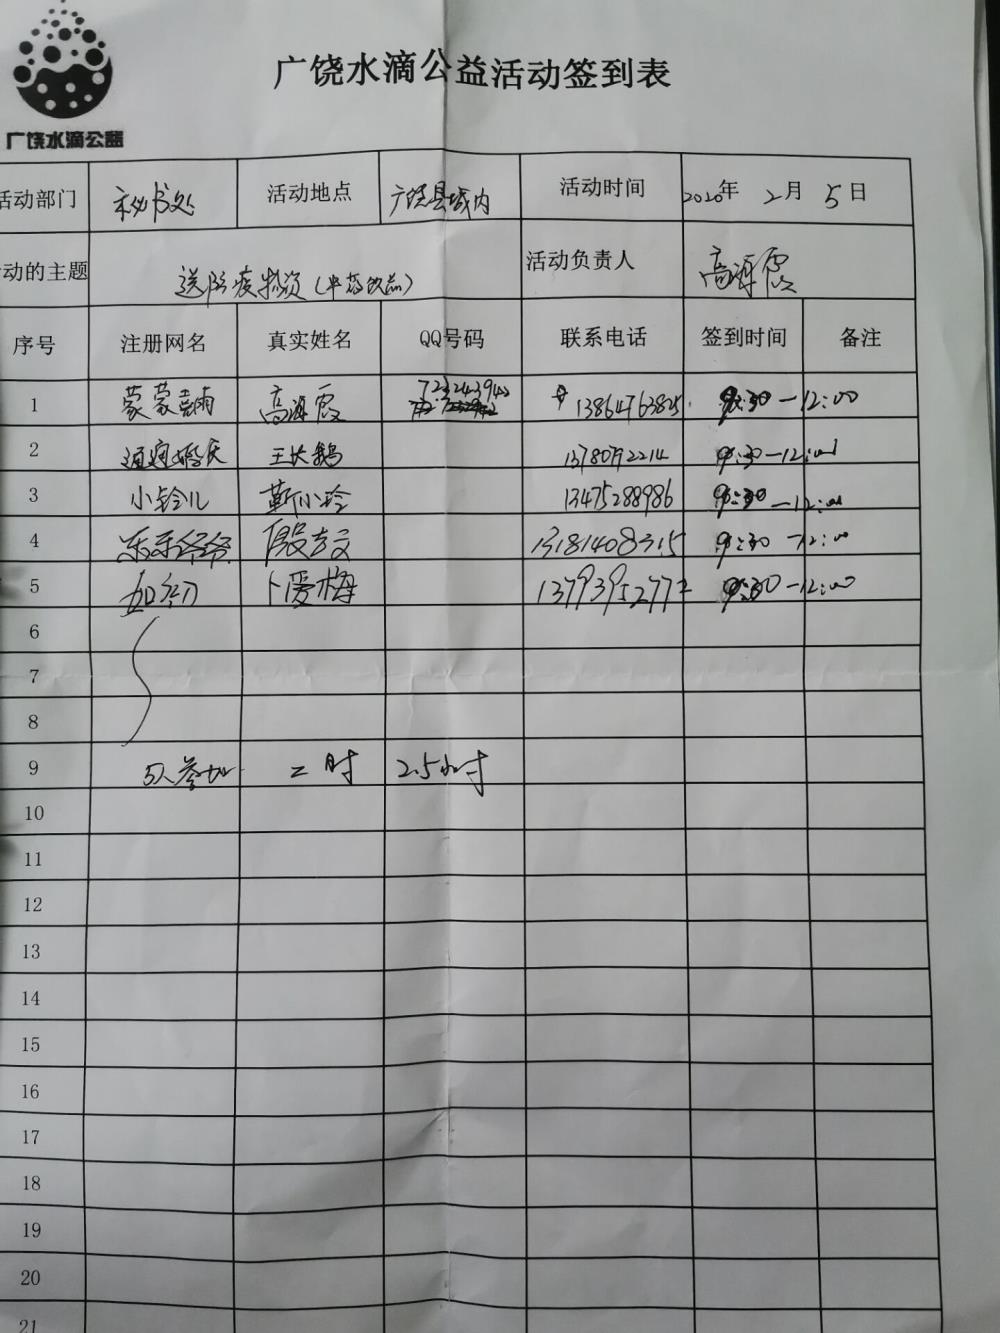 广饶水滴公益
广饶水滴公益活动签到表
活动部门 秘书处 活动地点 广饶县城内 活动时间 2020年 2月 5日
动的主题 送防疫物资(中药饮品) 活动负责人 高海霞
序号 注册网名 真实姓名 QQ号码 联系电话 签到时间 备注
1 蒙蒙 高海霞 723243942 13864763825 9:30-12:00
2 王长鹅 9:30-12:00
3 小铃儿 靳小玲 13475288986 9:30-12:00
4 乐乐爷爷 13181408315 9:30-12:00
5 卜爱梅 13793952772 9:30-12:00
6
7
8
9 5人参加 二时 2.5小时
10
11
12
13
14
15
16
17
18
19
20
21